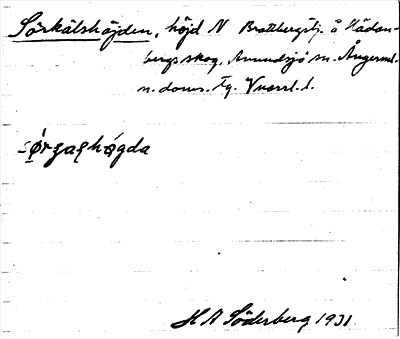 Sörkälshöjden, höjd N Brattbergstj. å Hädan-
bergs skog, Anundsjö sn. Ångerml.
n. doms. fg. Vnorrl. l.
sǿrʒaʂhǿgda
H A Söderberg 1931.